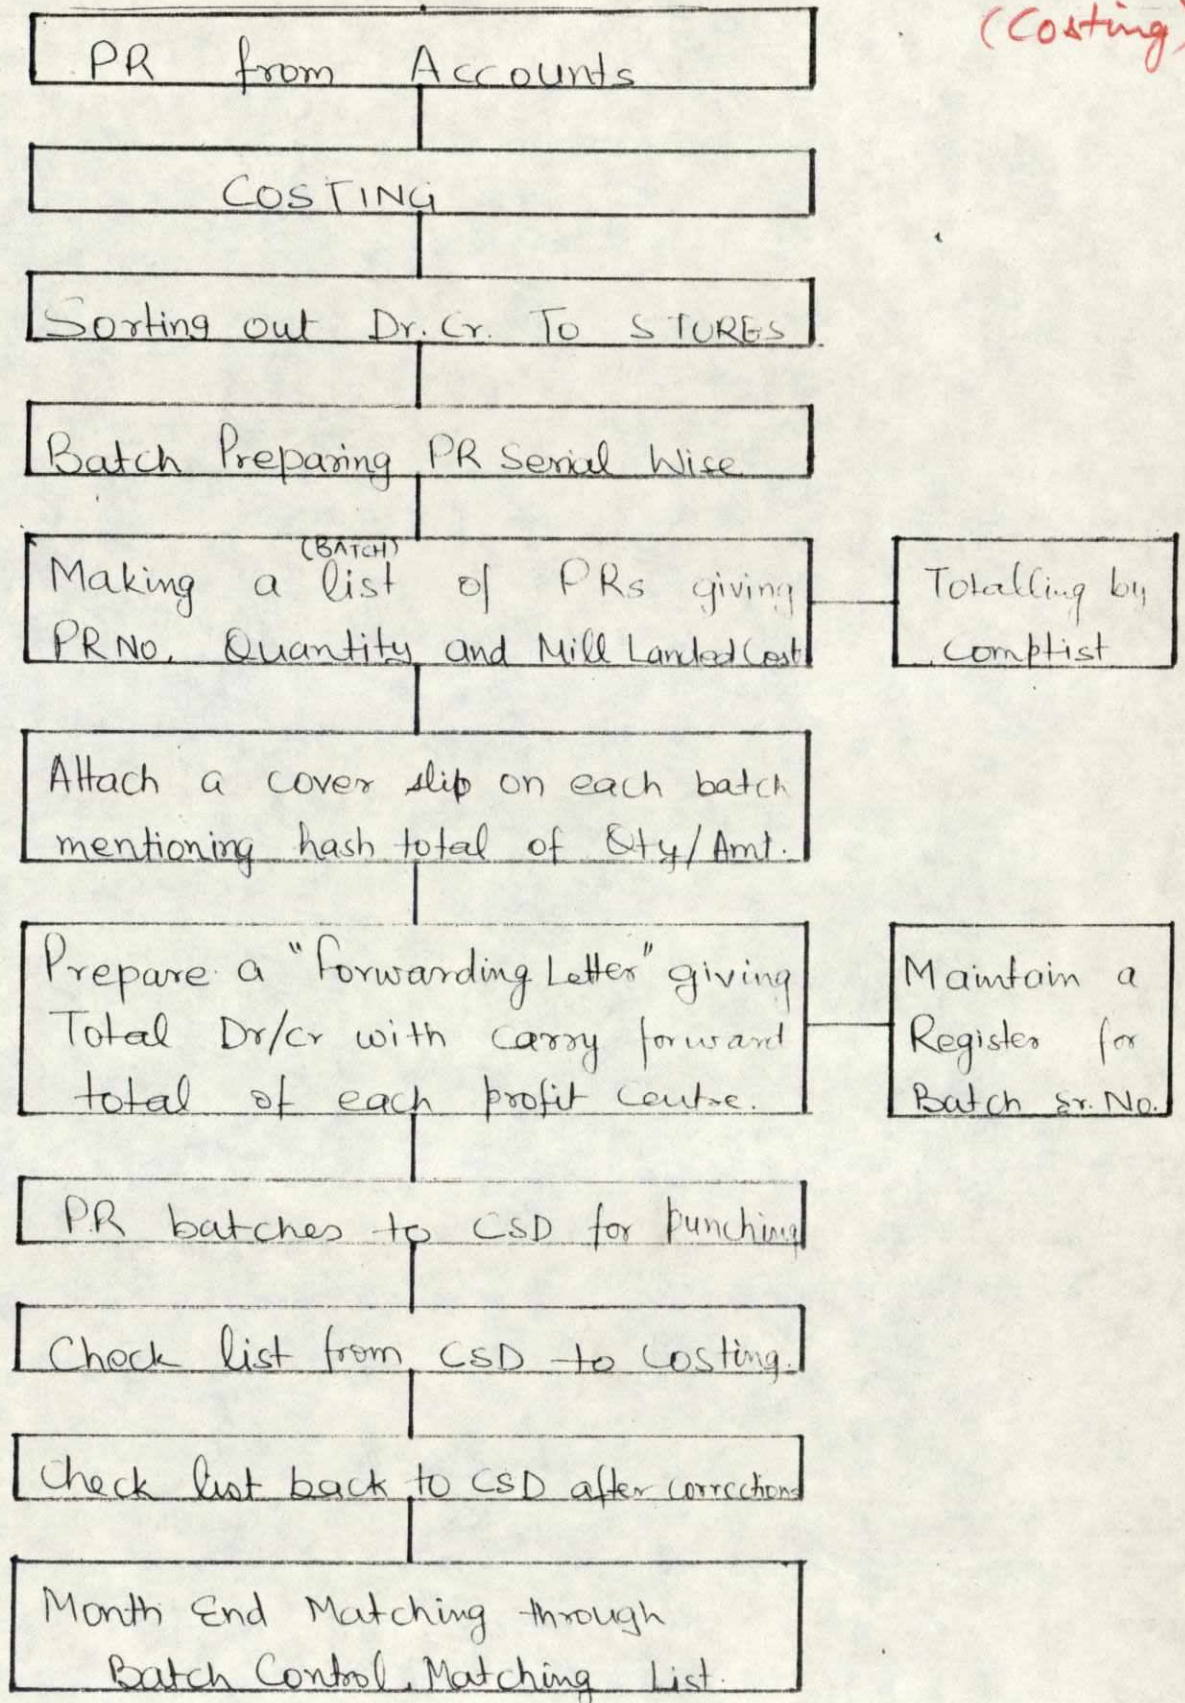 (Costing)
PR from Accounts
COSTING
Sorting out Dr. Cr. To STORES.
Batch Preparing PR Serial Wise
(BATCH)
Making a list of PRs giving
PR No. Quantity and Mill Landed Cost
Totalling by
comptist
Attach a cover slip on each batch
mentioning hash total of Qty/Amt.
Prepare a "Forwarding Letter" giving
Total Dr/Cr with carry forward
total of each profit centre.
Maintain a
Register for
Batch Sr. No.
PR batches to CSD for punching
Check list from CSD to Costing.
Check list back to CSD after corrections
Month End Matching through
Batch Control Matching List.